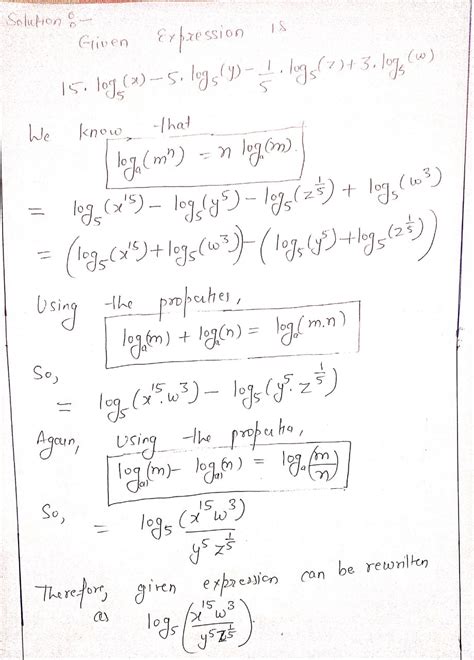 Solution :-
Given Expression is
15. log₅(x) – 5. log₅(y) – 1/5 . log₅(z) + 3. log₅(w)
We know, that
logₐ(mⁿ) = n logₐ(m).
= log₅(x¹⁵) – log₅(y⁵) – log₅(z^(1/5)) + log₅(w³)
= (log₅(x¹⁵) + log₅(w³)) – (log₅(y⁵) + log₅(z^(1/5)))
Using the properties,
logₐ(m) + logₐ(n) = logₐ(m.n)
So,
= log₅(x¹⁵.w³) – log₅(y⁵. z^(1/5))
Again, Using the properties,
logₐ(m) – logₐ(n) = logₐ(m/n)
So,
= log₅ (x¹⁵w³)/(y⁵z^(1/5))
Therefore, given expression can be rewritten
as log₅ (x¹⁵w³/y⁵z^(1/5)).